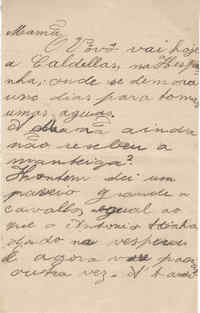 Mamã
Vovó vai hoje
a Caldellas, na Hespa
nha, onde se demora
uns dias para tomar
umas aguas.
A Mamã ainda
não recebeu a
manteiga?
Hontem dei um
passeio grande a
cavallo, egual ao
que o Antonio tinha
dado na vespera
e agora vou
outra vez. A